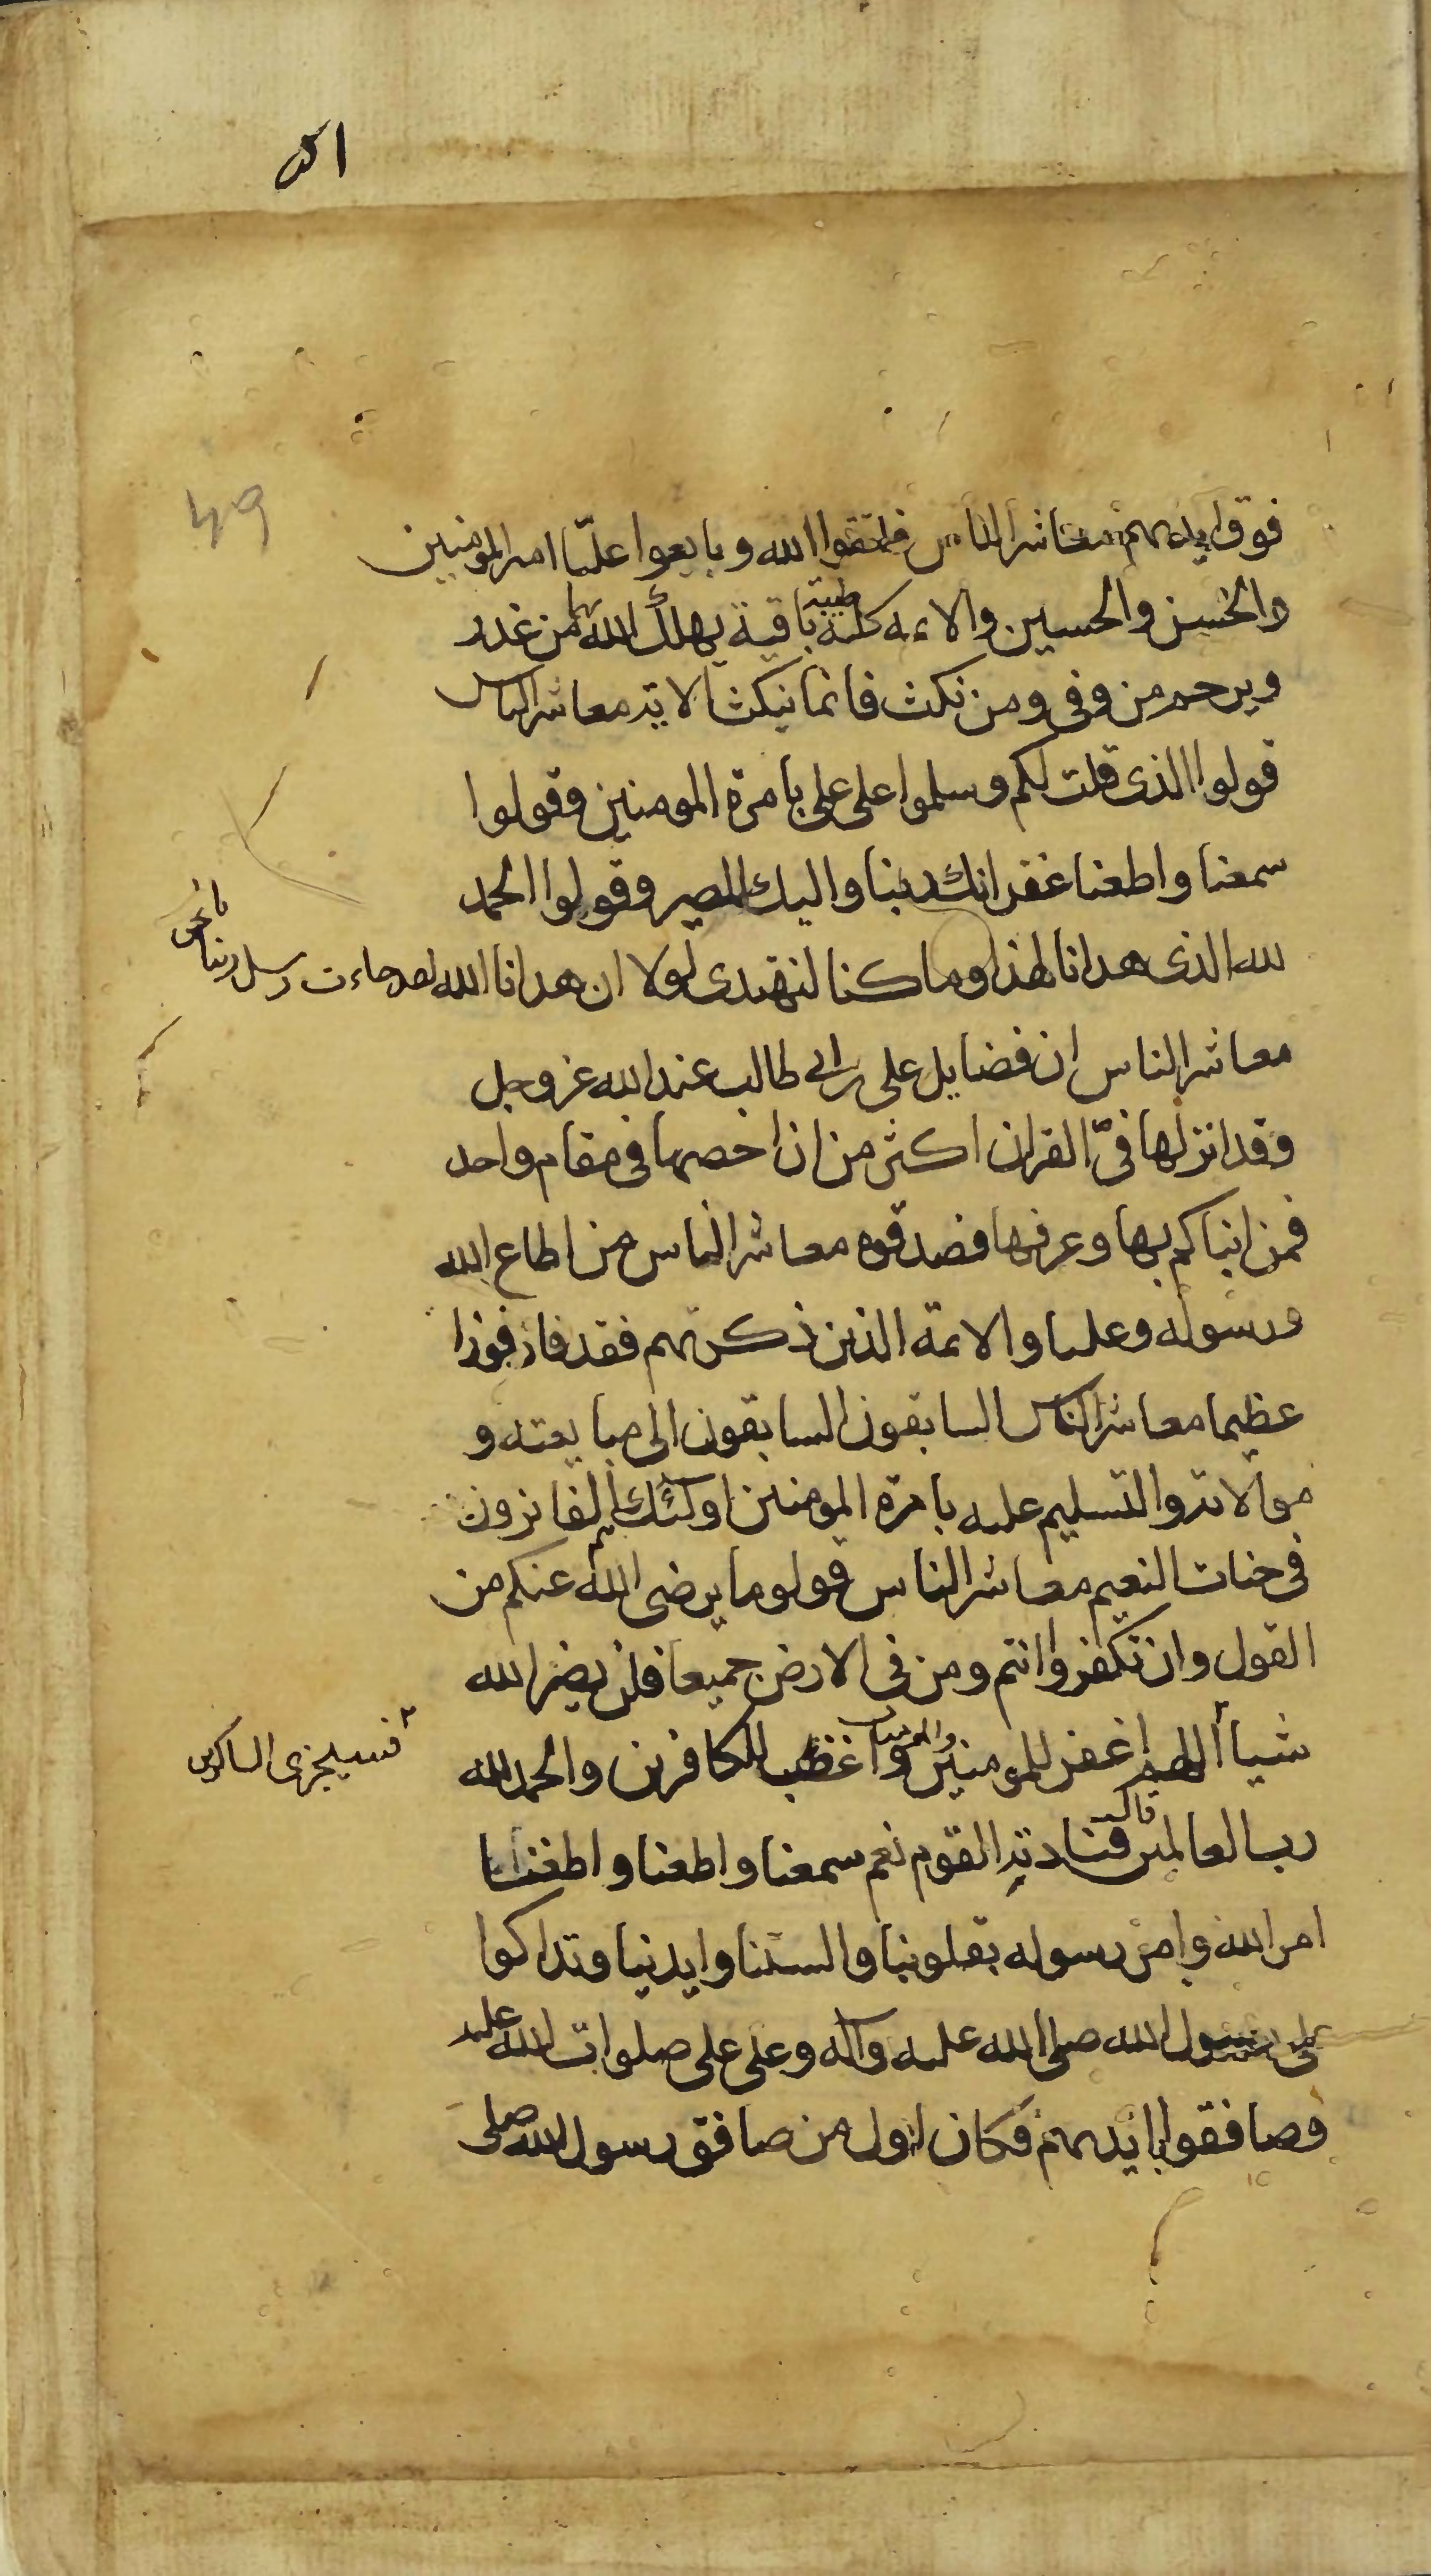 49
فوق ايديهم معاشر الناس فاتقوا الله وبايعوا عليّا امير المومنين
والحسن والحسين والائمه كلمة طيبة باقية يهلك الله بها من غدر
ويرحم من وفى ومن نكث فانما نيكث الاية معاشر الناس
قولوا الذى قلت لكم وسلموا على على بامرة المومنين وقولوا
سمعنا واطعنا غفرانك ربنا واليك المصير وقولوا الحمد
لله الذى هدانا لهذا وما كنا لنهتدى لولا ان هدانا الله لقد جاءت رسل ربنا بالحق
معاشر الناس ان فضايل على بن ابى طالب عند الله عز وجل
وقد انزلها فى القران اكثر من ان احصيها فى مقام واحد
فمن انباكم بها وعرفها فصدقوه معاشر الناس من اطاع الله
ورسوله وعليا والائمة الذين ذكرتهم فقد فاز فوزا
عظيما معاشر الناس السابقون السابقون الى مبايعته و
موالاته والتسليم عليه بامرة المومنين اولئك هم الفائزون
فى جنات النعيم معاشر الناس قولو ما يرضى الله عنكم من
القول وان تكفروا انتم ومن فى الارض جميعا فلن يضر الله
شيأ اللهم اغفر للمومنين والمومنات واغظب للكافرين والحمد لله
فسيجزى الشاكرين
رب العالمين قال فنادته القوم نعم سمعنا واطعنا واطعنا
امر الله وامر رسوله بقلوبنا والسنتنا وايدينا وتداكوا
على رسول الله صلى الله عليه وآله وعلى على صلوات الله عليه
وصافقوا بايديهم فكان اول من صافق رسول الله صلى